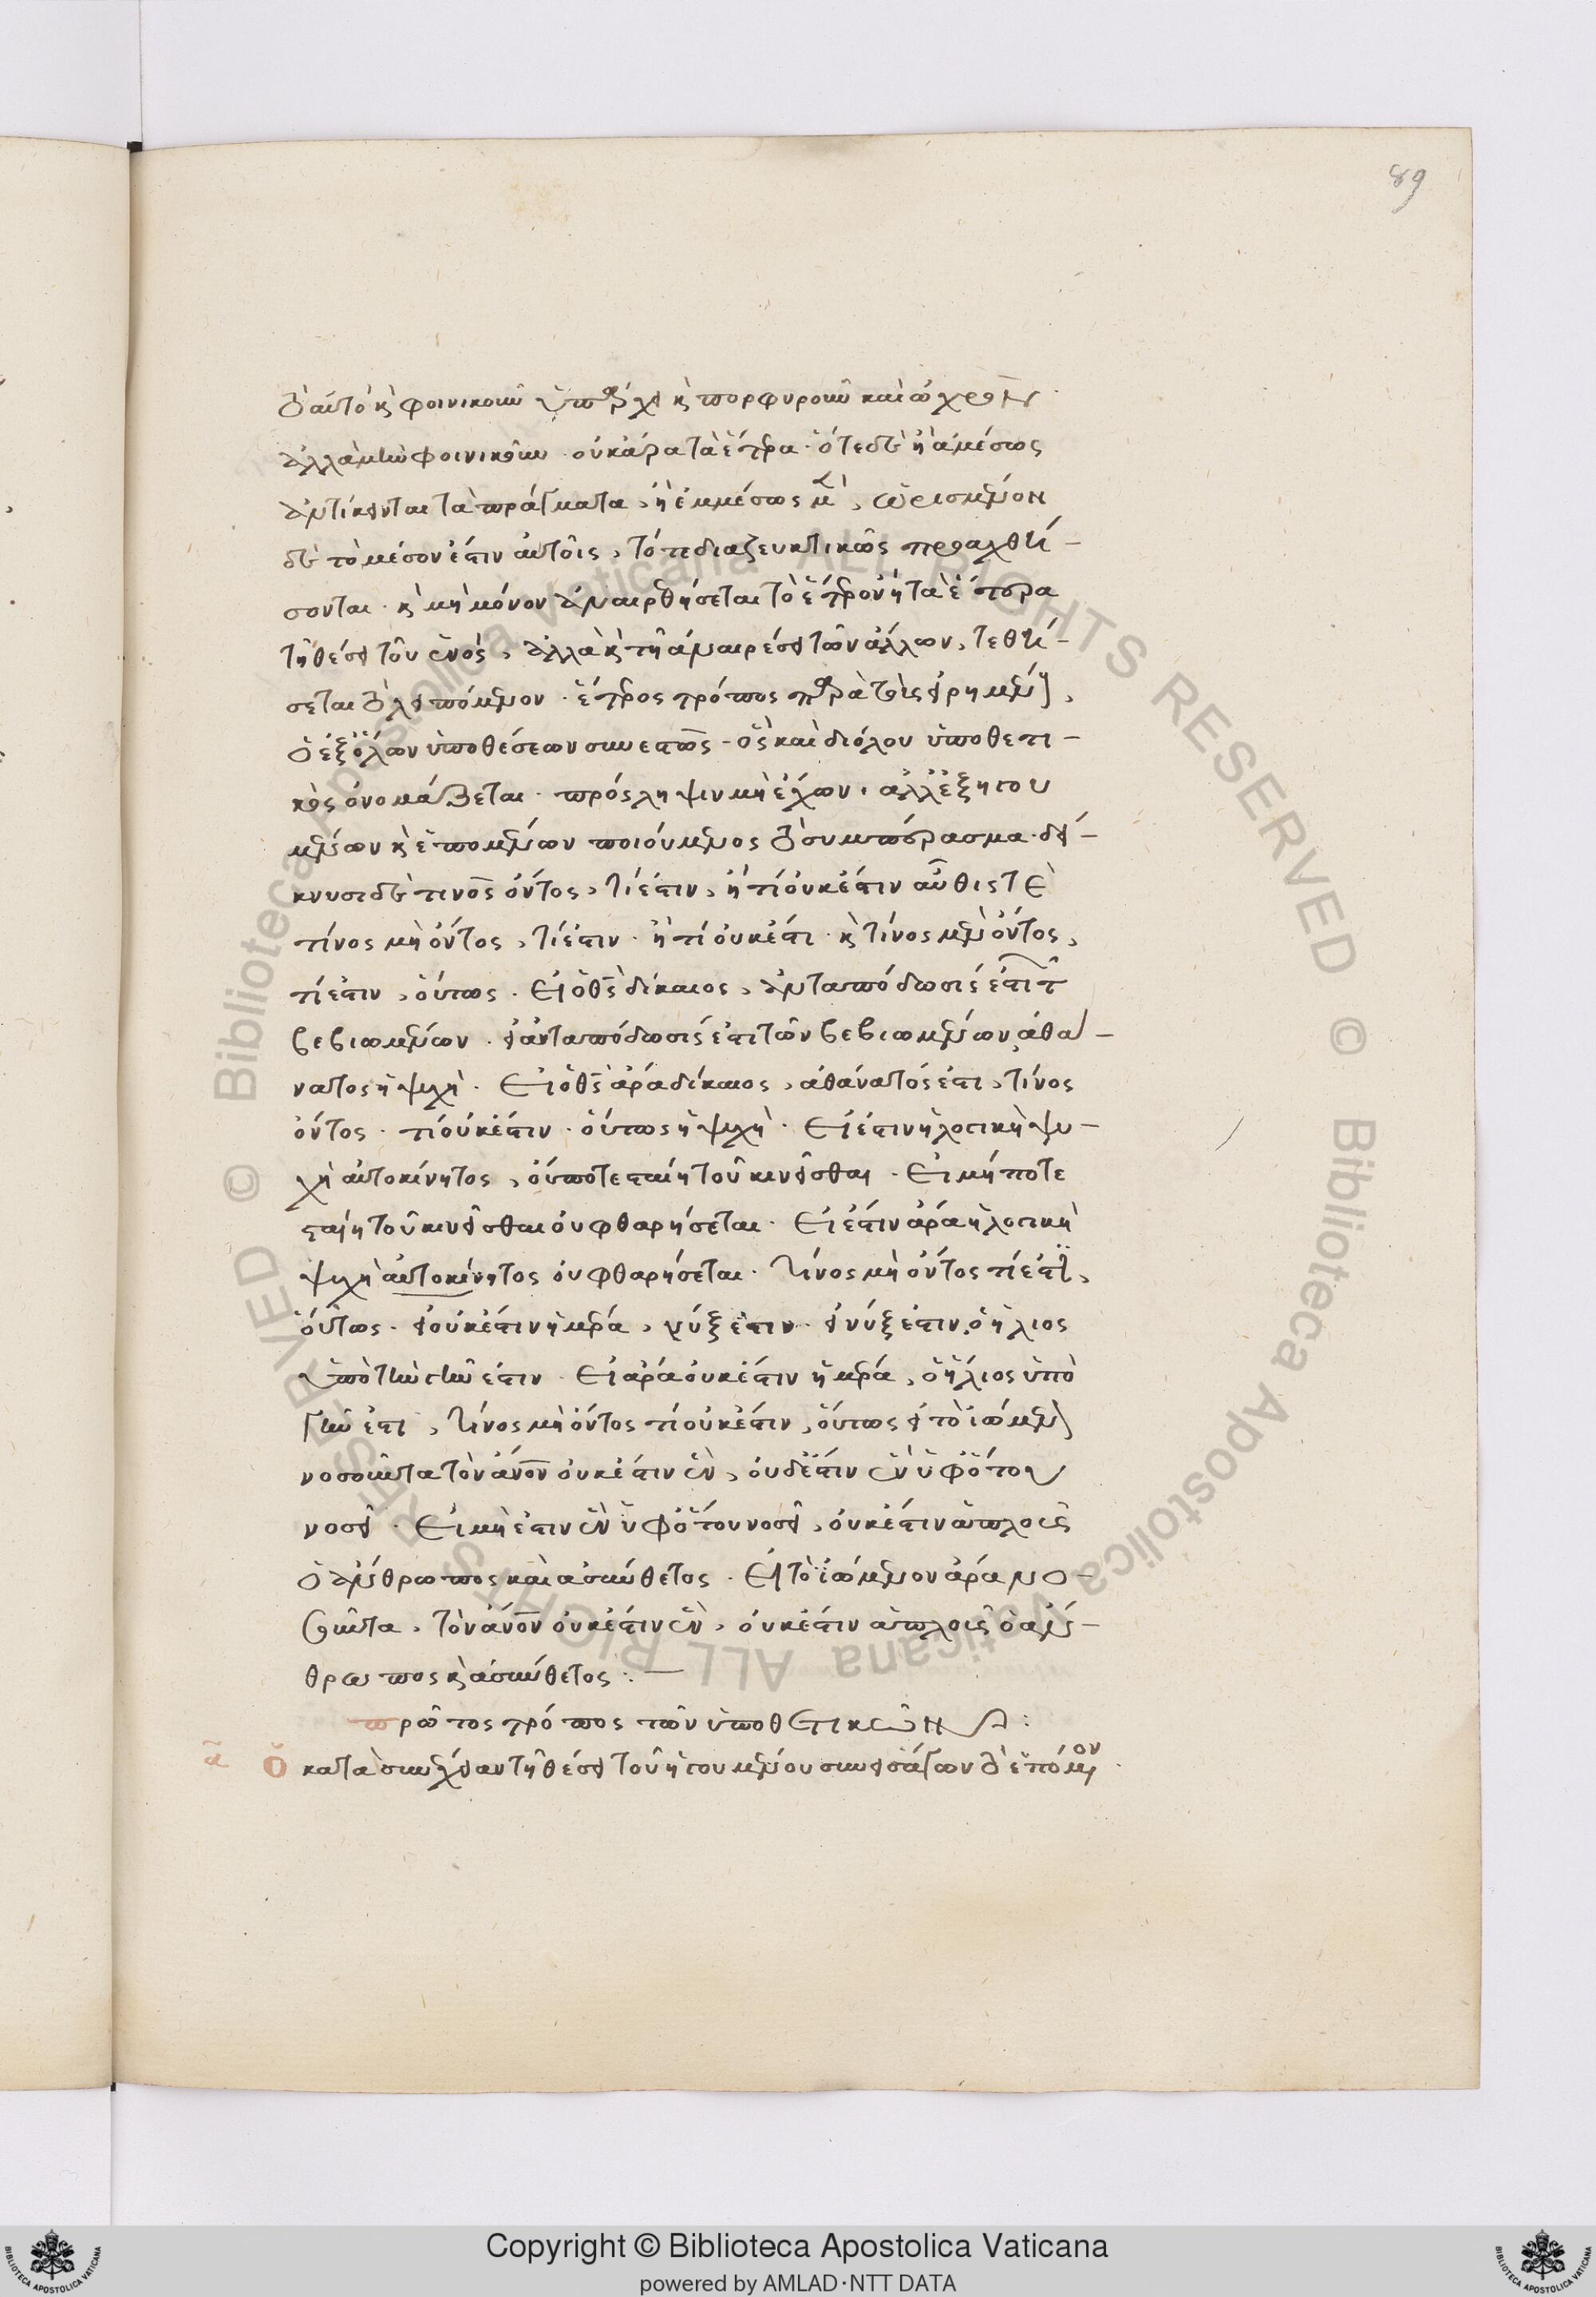 89
τὸ αὐτὸ καὶ φοινικοῦν ὑπάρχει καὶ πορφυροῦν καὶ ὠχρὸν.
ἀλλὰ μὴν φοινικοῦν. οὐκ ἄρα τὰ ἕτερα. ὅτε δὲ ἢ ἀμέσως
ἀντίκεινται τὰ πράγματα, ἢ ἐμμέσως μὲν, ὡρισμένον
δὲ τὸ μέσον ἐστὶν αὐτοῖς, τότε διαζευκτικῶς προαχθή-
σονται. καὶ μὴ μόνον ἀναιρεθήσεται τὸ ἕτερον ἢ τὰ ἕτερα
τῇ θέσει τοῦ ἑνός, ἀλλὰ καὶ τῇ ἀναιρέσει τῶν ἄλλων, τεθή-
σεται τὸ λειπόμενον. ἕτερος τρόπος παρὰ τοὺς εἰρημένους,
ὁ ἐξ ὅλων ὑποθέσεων συνεστώς. ὃς καὶ διόλου ὑποθετι-
κὸς ὀνομάζεται. πρόσληψιν μὴ ἔχων. ἀλλ' ἐξ ἡγου
μένων καὶ ἑπομένων ποιούμενος τὸ συμπέρασμα. δεί-
κνυσι δὲ τινὸς ὄντος, τί ἐστιν, ἢ τί οὐκ ἔστιν αὖθις τὲ
τίνος μὴ ὄντος, τί ἐστιν. ἢ τί οὐκ ἔστι. καὶ τίνος μὲν ὄντος,
τί ἐστιν, οὕτως. Εἰ ὁ θεὸς δίκαιος, ἀνταπόδωσίς ἐστι τῶν
βεβιωμένων. εἰ ἀνταπόδωσίς ἐστι τῶν βεβιωμένων, ἀθά-
νατος ἡ ψυχὴ. Εἰ ὁ θεὸς ἄρα δίκαιος, ἀθάνατός ἐστι, τίνος
ὄντος. τί οὐκ ἔστιν. οὕτως ἡ ψυχὴ. Εἰ ἔστιν ἡ λογικὴ ψυ-
χὴ αὐτοκίνητος, οὔποτε σταίη τοῦ κινεῖσθαι. Εἰ μήποτε
σταίη τοῦ κινεῖσθαι οὐ φθαρήσεται. Εἰ ἔστιν ἄρα ἡ λογικὴ
ψυχὴ αὐτοκίνητος οὐ φθαρήσεται. τίνος μὴ ὄντος τί ἐστι,
οὕτως. εἰ οὐκ ἔστιν ἡμέρα, νύξ ἐστιν. εἰ νύξ ἐστιν, ὁ ἥλιος
ὑπὸ τὴν γῆν ἐστιν. Εἰ ἄρα οὐκ ἔστιν ἡμέρα, ὁ ἥλιος ὑπὸ
γῆν ἐστι, τίνος μὴ ὄντος τί οὐκ ἔστιν, οὕτως εἰ τὸ ἰώμενον
νοσοῦντα τὸν ἄνθρωπον οὐκ ἔστιν ἓν, οὐδ' ἔστιν ἓν ὑφ' ὅτου
νοσεῖ. Εἰ μὴ ἔστιν ἓν ὑφ' ὅτου νοσεῖ, οὐκ ἔστιν ἁπλοῦς
ὁ ἄνθρωπος καὶ ἀσύνθετος. Εἰ τὸ ἰώμενον ἄρα νο-
σοῦντα, τὸν ἄνθρωπον οὐκ ἔστιν ἓν, οὐκ ἔστιν ἁπλοῦς ὁ ἄν-
θρωπος καὶ ἀσύνθετος:—
πρῶτος τρόπος τῶν ὑποθετικῶν
α Ὁ κατὰ συνέχειαν τῇ θέσει τοῦ ἡγουμένου συνεισάγων τὸ ἑπόμενον.
Copyright © Biblioteca Apostolica Vaticana
powered by AMLAD·NTT DATA